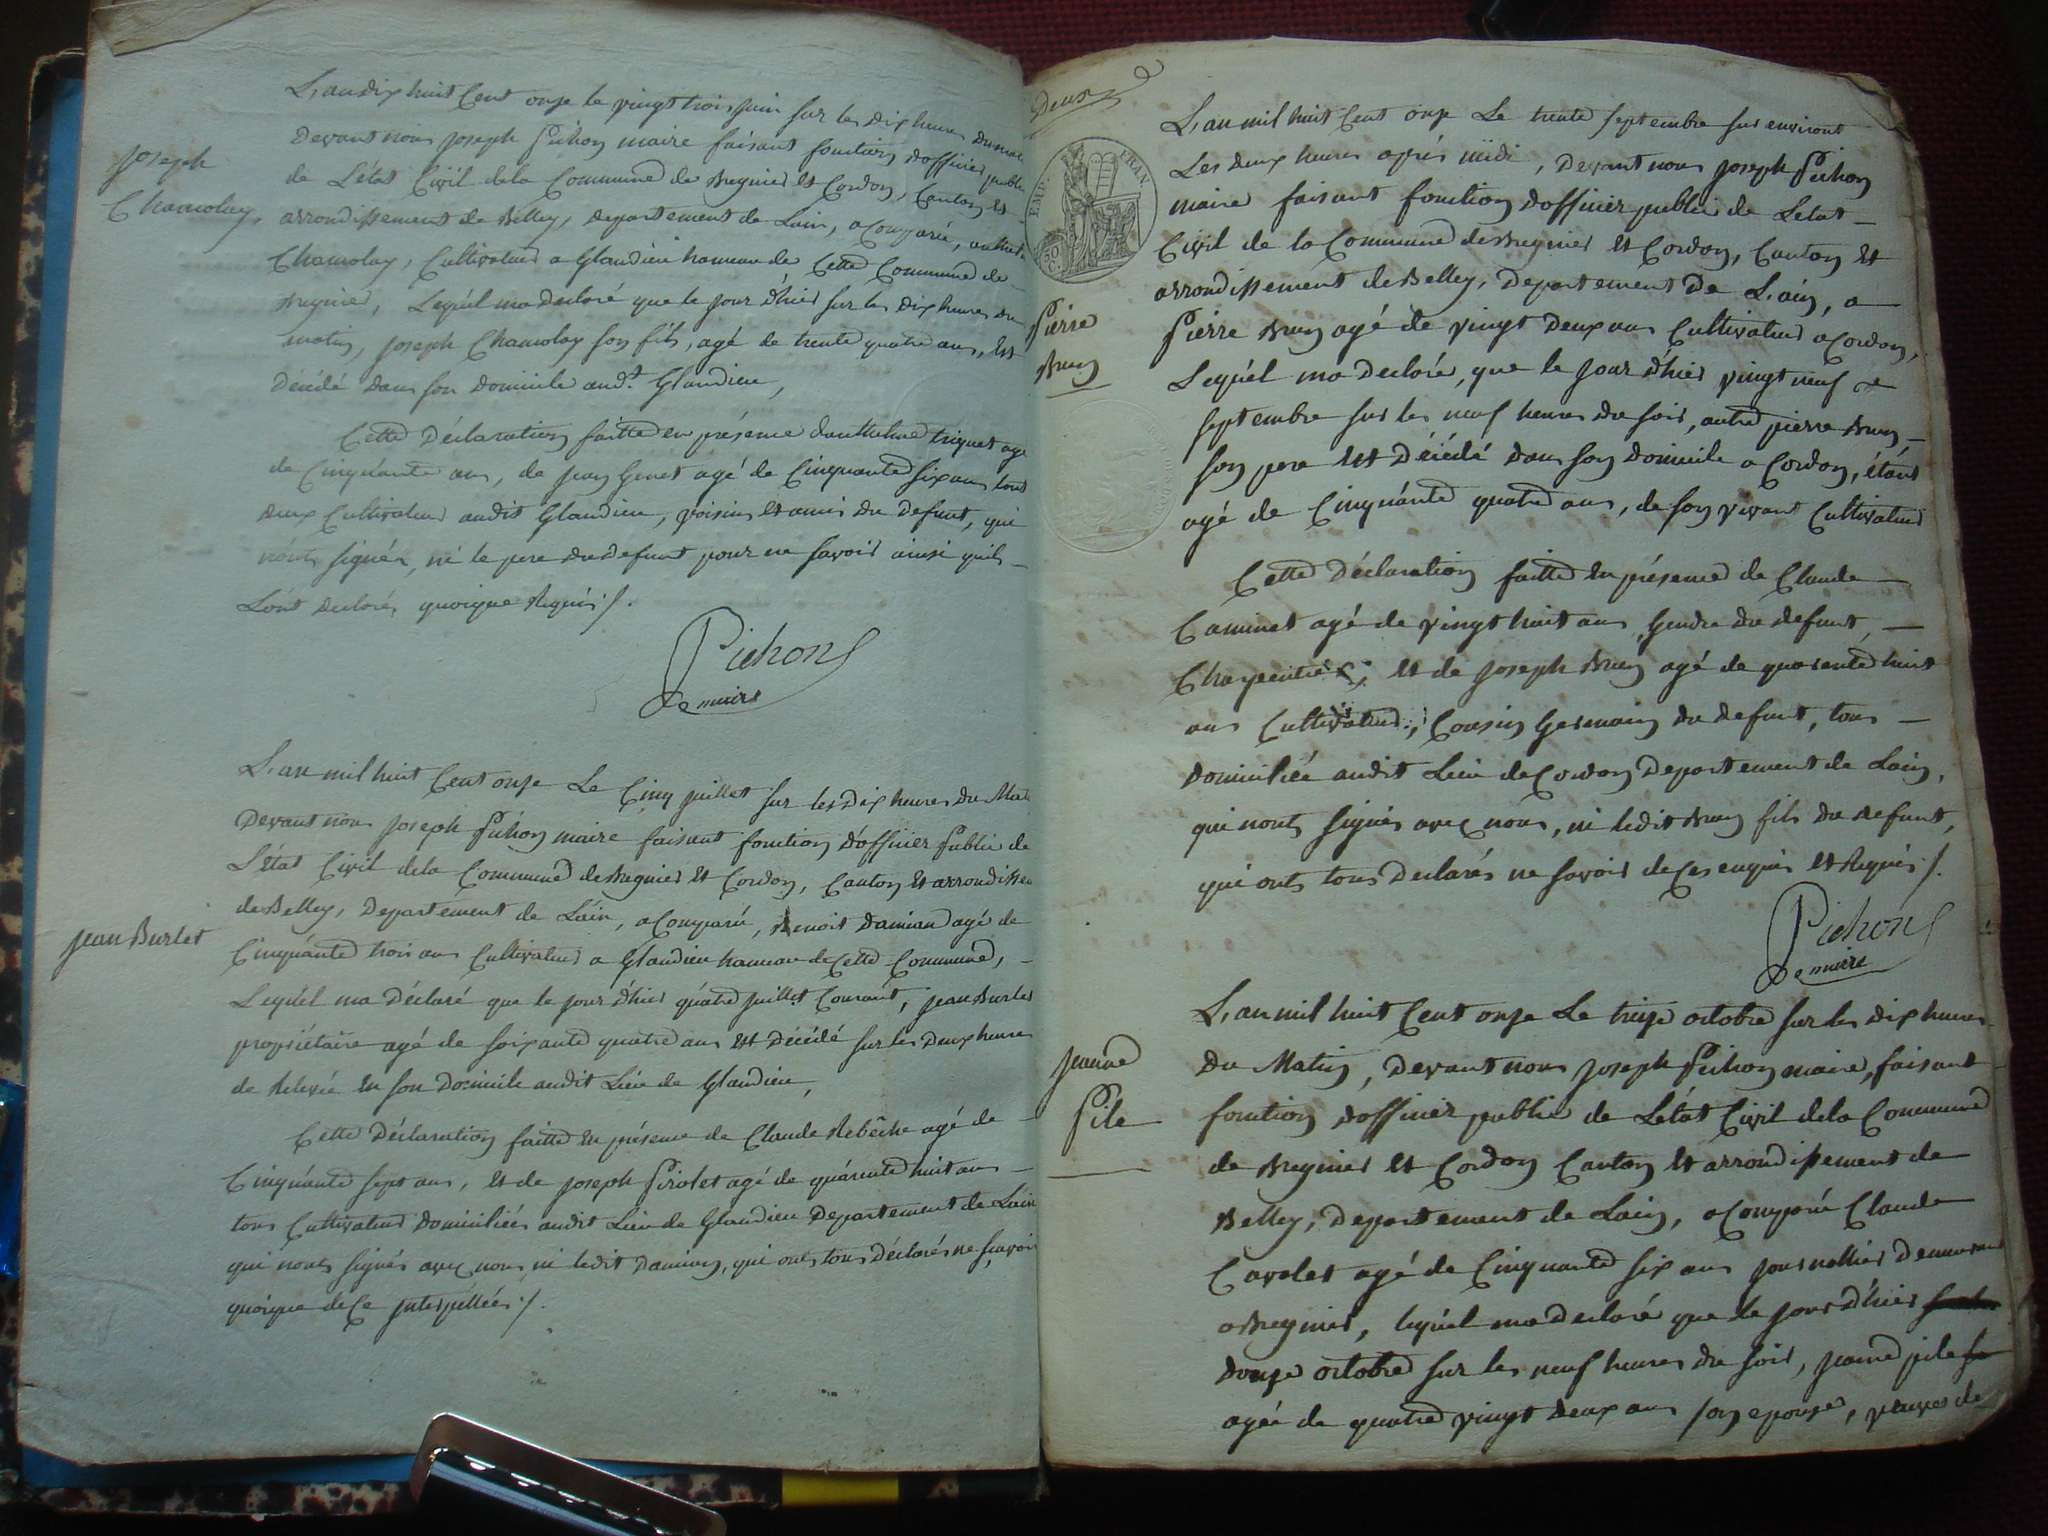 L'an dix huit Cent onze le vingt trois juin sur les dix heures du mat
devant nous joseph Pichon maire faisant fonction d'officier public
de L'état Civil de la Commune de Bregnier et Cordon, Canton et
Joseph
Chamolay,
arrondissement de Belley, departement de Lain, a Comparu, anthel
Chamolay, Cultivateur a Glandieu hameau de Cette Commune de
Bregnier, Lequel ma declaré que le jour d'hier sur les dix heures du
matin, joseph Chamolay son fils, agé de trente quatre ans, est
Décédé dans son domicile aud.t Glandieu,
Cette Déclaration faitte en présence danthelme triquet agé
de Cinquante ans, de jean Genet agé de Cinquante six ans tous
deux Cultivateurs audit Glandieu, voisins et amis du defunt, qui
nonts signés, ni le pere du defunt pour ne savoir ainsi quils
Lont declarés quoique Requis ⁒.
Pichon
Le maire
L'an mil huit Cent onze Le Cinq juillet sur les dix heures du Mat
Devant nous joseph Pichon maire faisant fonction d'officier Public de
L'état Civil de la Commune de Bregnier et Cordon, Canton et arrondissem
de Belley, Departement de Lain, a Comparu, Benoit Damian agé de
jean Burlet
Cinquante trois ans Cultivateur a Glandieu hameau de Cette Commune,
Lequel ma déclaré que le jour d'hier quatre juillet Courant, jean Burlet
propriétaire agé de soixante quatre ans est décédé sur les deux heures
de Relevée en son Domicile audit Lieu de Glandieu,
Cette Déclaration faitte en présence de Claude Rebêche agé de
Cinquante sept ans, et de joseph Pirolet agé de quarante huit ans
tous Cultivateurs domiciliés audit Lieu de Glandieu Departement de Lain
qui nonts signés avec nous, ni ledit Damian, qui onts tous déclarés ne sçavoir
quoique de Ce interpellées ⁒.
Deux
EMP. FRAN.
50 C.
L'an mil huit Cent onze Le trente septembre sur environt
Les deux heures après midi, Devant nous joseph Pichon
maire faisant fonction d'officier public de L'état
Civil de la Commune de Bregnier et Cordon, Canton et
arrondissement de Belley, Departement De L'ain, a
Pierre
Brun
Pierre Brun agé de vingt deux ans Cultivateur a Cordon,
Lequel ma declaré, que le jour d'hier vingt neuf
septembre sur les neuf heures du soir, autre pierre Brun
son pere est Décédé dans son domicile a Cordon, étant
agé de Cinquante quatre ans, de son vivant Cultivateur
Cette Déclaration faitte en présence de Claude
Caminet agé de vingt huit ans, Gendre du defunt,
Charpentier, et de joseph Brun agé de quarante huit
ans Cultivateur, Cousin Germain du defunt, tous
Domiciliés audit Lieu de Cordon Departement de Lain,
qui nonts signés avec nous, ni ledit Brun fils du defunt,
qui onts tous Declarés ne savoir de Ces enquis et Requis ⁒.
Pichon
Le maire
L'an mil huit Cent onze Le treize octobre sur les dix heures
Jeanne
Pile
Du Matin, Devant nous joseph Pichon maire, faisant
fonction d'officier public de L'état Civil de la Commune
de Bregnier et Cordon Canton et arrondissement de
Belley, Departement de Lain, a Comparu Claude
Cavolet agé de Cinquante six ans journallier demeurant
a Bregnier, lequel ma declaré que le jour d'hier
douze octobre sur les neuf heures du soir, jeanne pile
agée de quatre vingt deux ans son epouse, veuve de